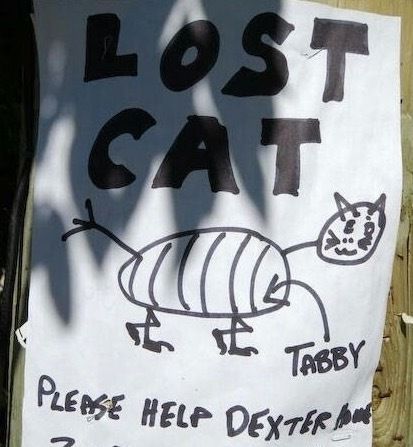 LOST
CAT
TABBY
PLEASE HELP DEXTER